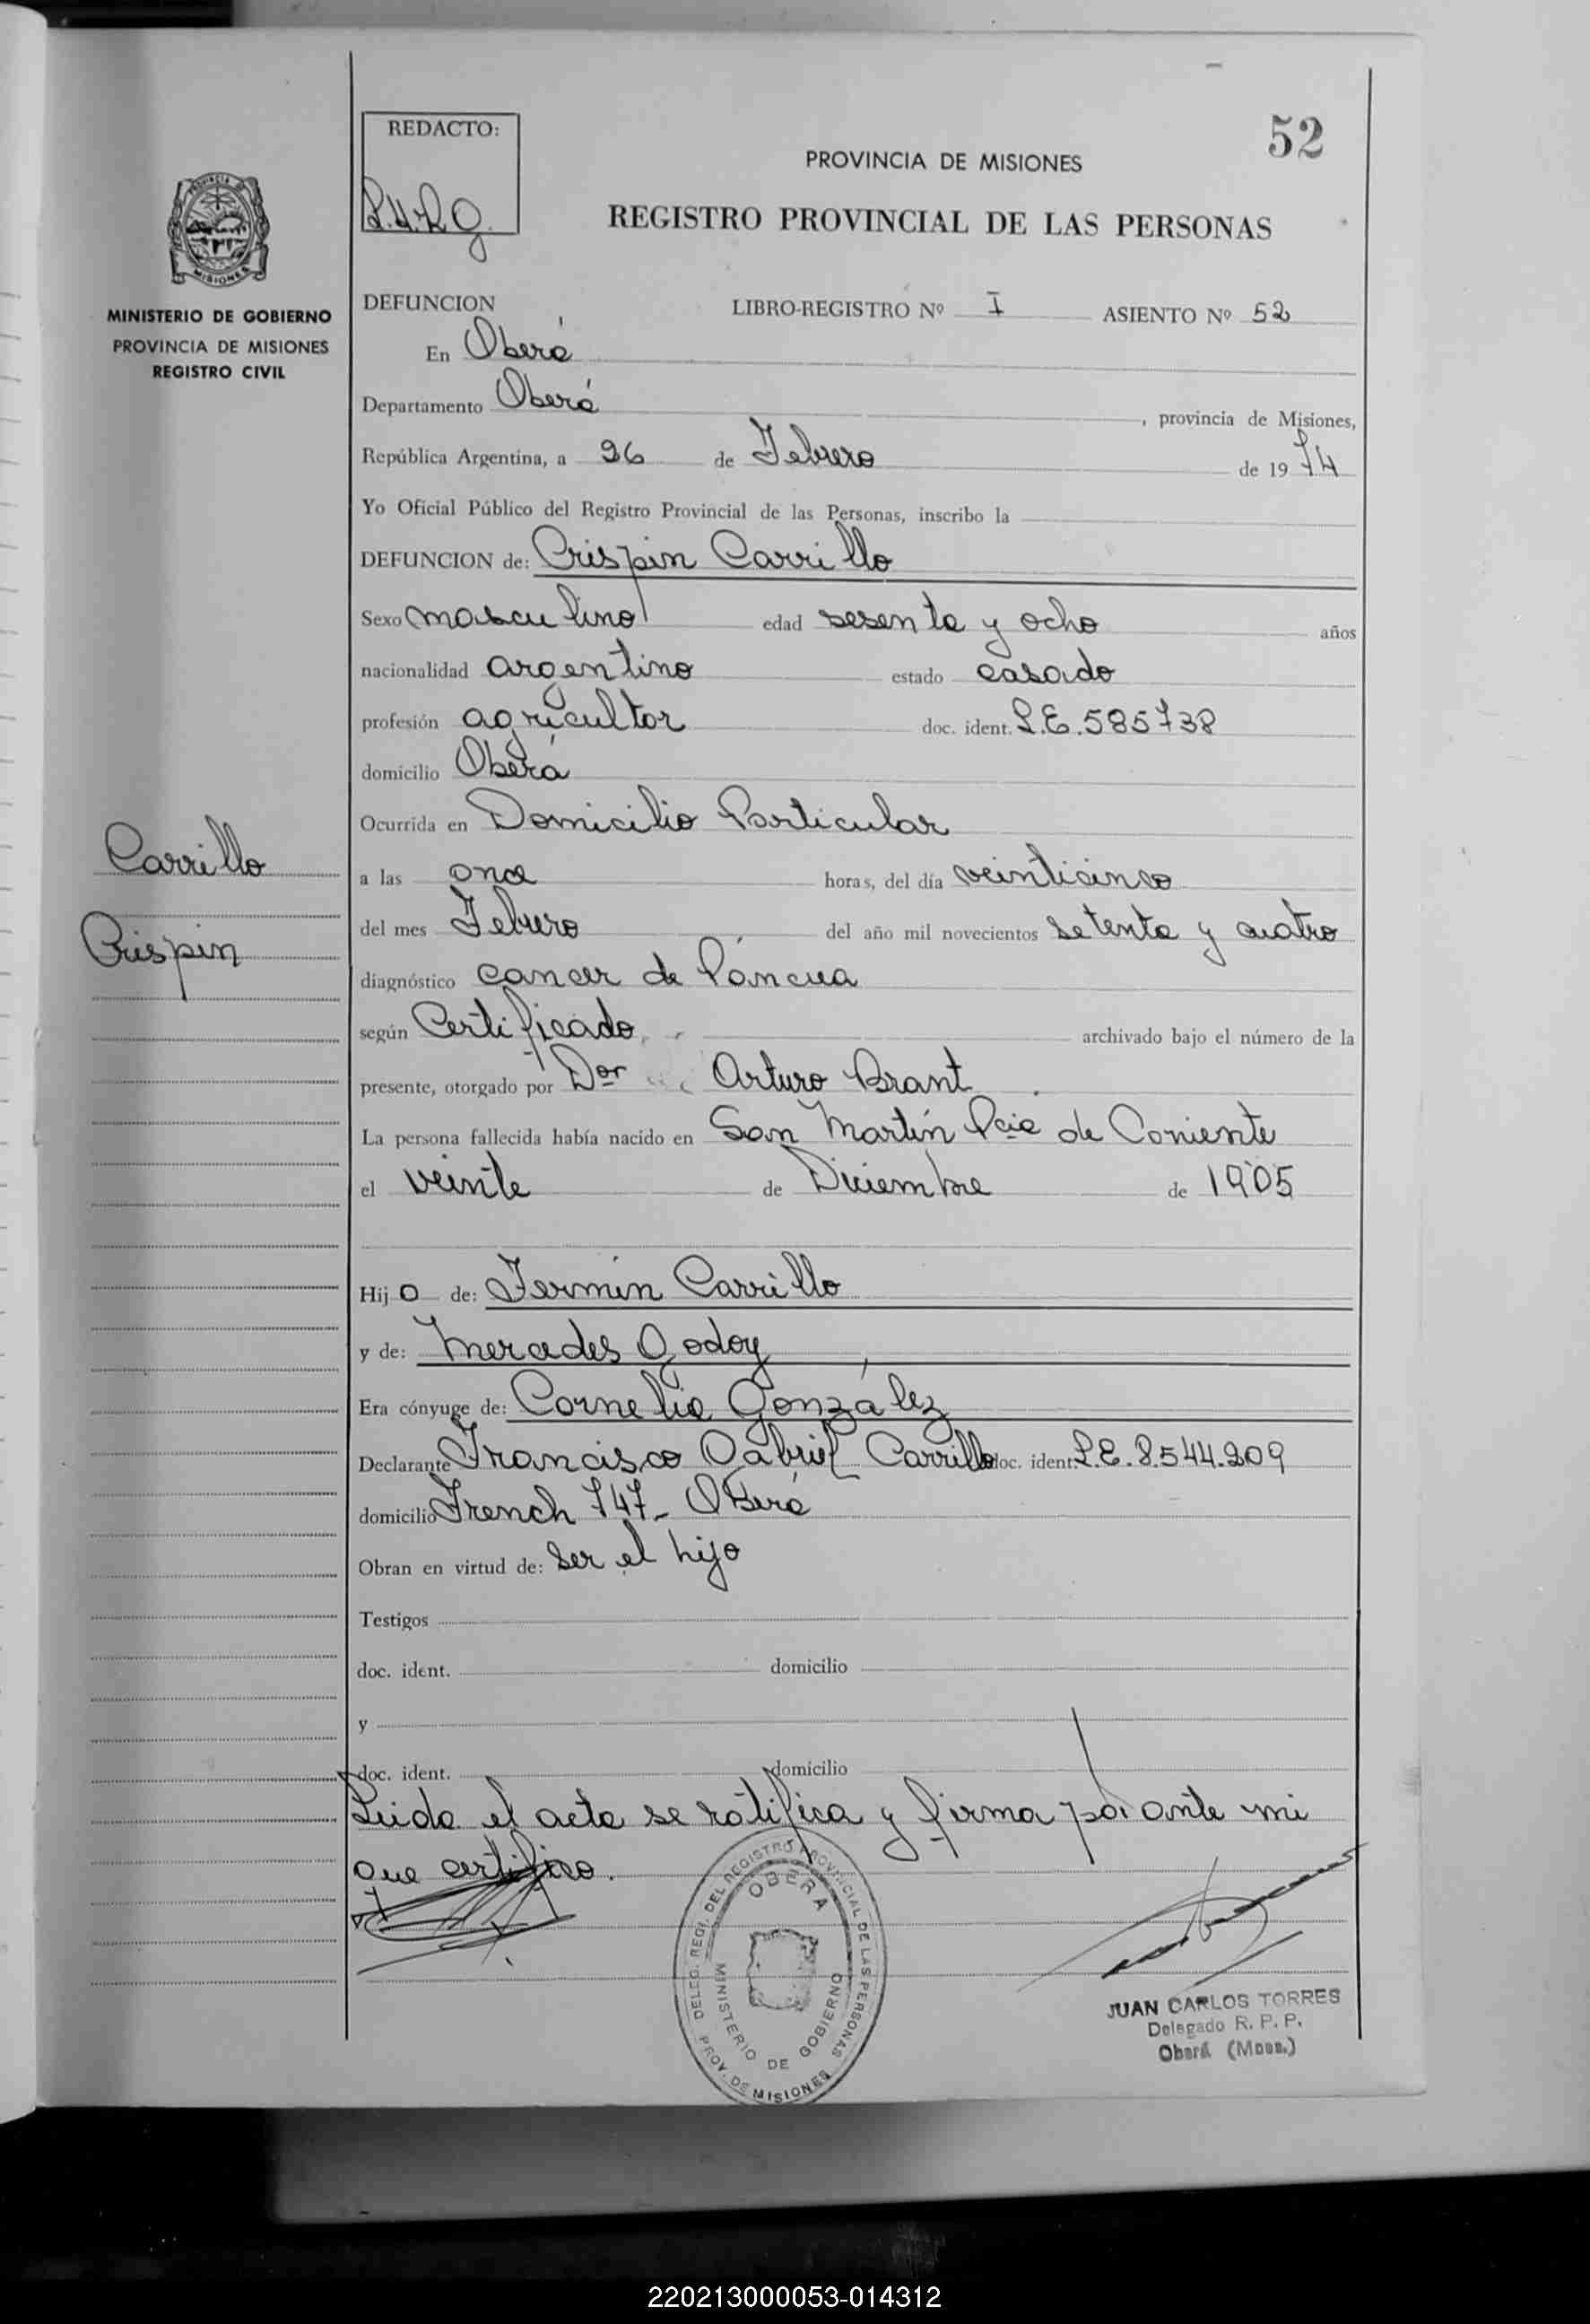 52
REDACTO:
PROVINCIA DE MISIONES
REGISTRO PROVINCIAL DE LAS PERSONAS
MINISTERIO DE GOBIERNO
PROVINCIA DE MISIONES
REGISTRO CIVIL
DEFUNCION LIBRO-REGISTRO Nº I ASIENTO Nº 52
En Oberá
Departamento Oberá, provincia de Misiones,
República Argentina, a 26 de Febrero de 1974
Yo Oficial Público del Registro Provincial de las Personas, inscribo la
DEFUNCION de: Crispin Carrillo
Sexo masculino edad sesenta y ocho años
nacionalidad argentino estado casado
profesión agricultor doc. ident. L.E. 585738
domicilio Oberá
Ocurrida en Domicilio Particular
Carrillo
a las once horas, del día veinticinco
Crispin
del mes Febrero del año mil novecientos setenta y cuatro
diagnóstico cancer de Páncrea
según Certificado archivado bajo el número de la
presente, otorgado por Dor Arturo Brant
La persona fallecida había nacido en San Martín Pcia de Corriente
el veinte de Diciembre de 1905
Hijo de: Fermin Carrillo
y de: Mercedes Godoy
Era cónyuge de: Cornelia González
Declarante Francisco Gabriel Carrillo doc. ident. L.E. 8.544.209
domicilio French 747- Oberá
Obran en virtud de: Ser el hijo
Testigos
doc. ident. domicilio
y
doc. ident. domicilio
Leida el acta se ratifica y firma por ante mi
que certifico.
DELEG. REGI. DEL REGISTRO PROVINCIAL DE LAS PERSONAS
OBERA
MINISTERIO DE GOBIERNO
PROV. DE MISIONES
JUAN CARLOS TORRES
Delegado R. P. P.
Oberá (Mnes.)
220213000053-014312